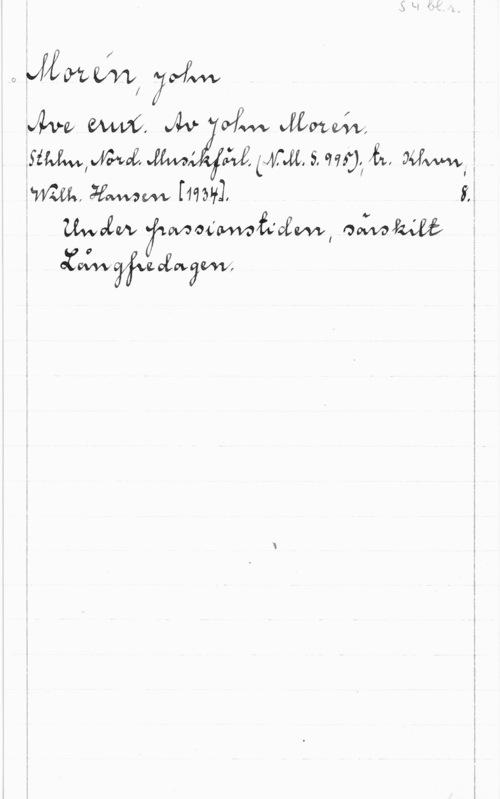 S 4 bl. r.
Morén, John
Ave crux. Av John Morén.
Sthlm, Nord. Musikförl. (N.M.S. 995), tr. Khvn,
Wilh. Hansen [1934]. 8.
Under passionstiden, särskilt
Långfredagen.